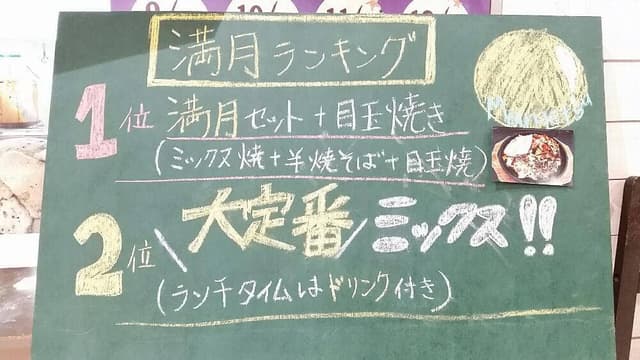 満月ランキング
1位 満月セット+目玉焼き
(ミックス焼+半焼そば+目玉焼)
2位 \大定番/ミックス!!
(ランチタイムはドリンク付き)